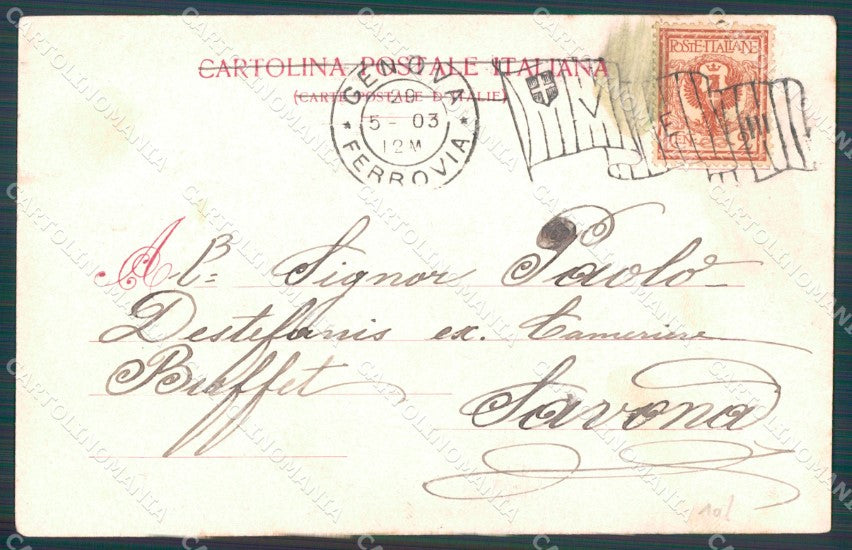 CARTOLINA POSTALE ITALIANA
(CARTE POSTALE D'ITALIE)
GENOVA
29
5 - 03
12 M
* FERROVIA *
POSTE·ITALIANE
Al Signor Paolo
Destefanis ex. Cameriere
Buffet
Savona
CARTOLINOMANIA